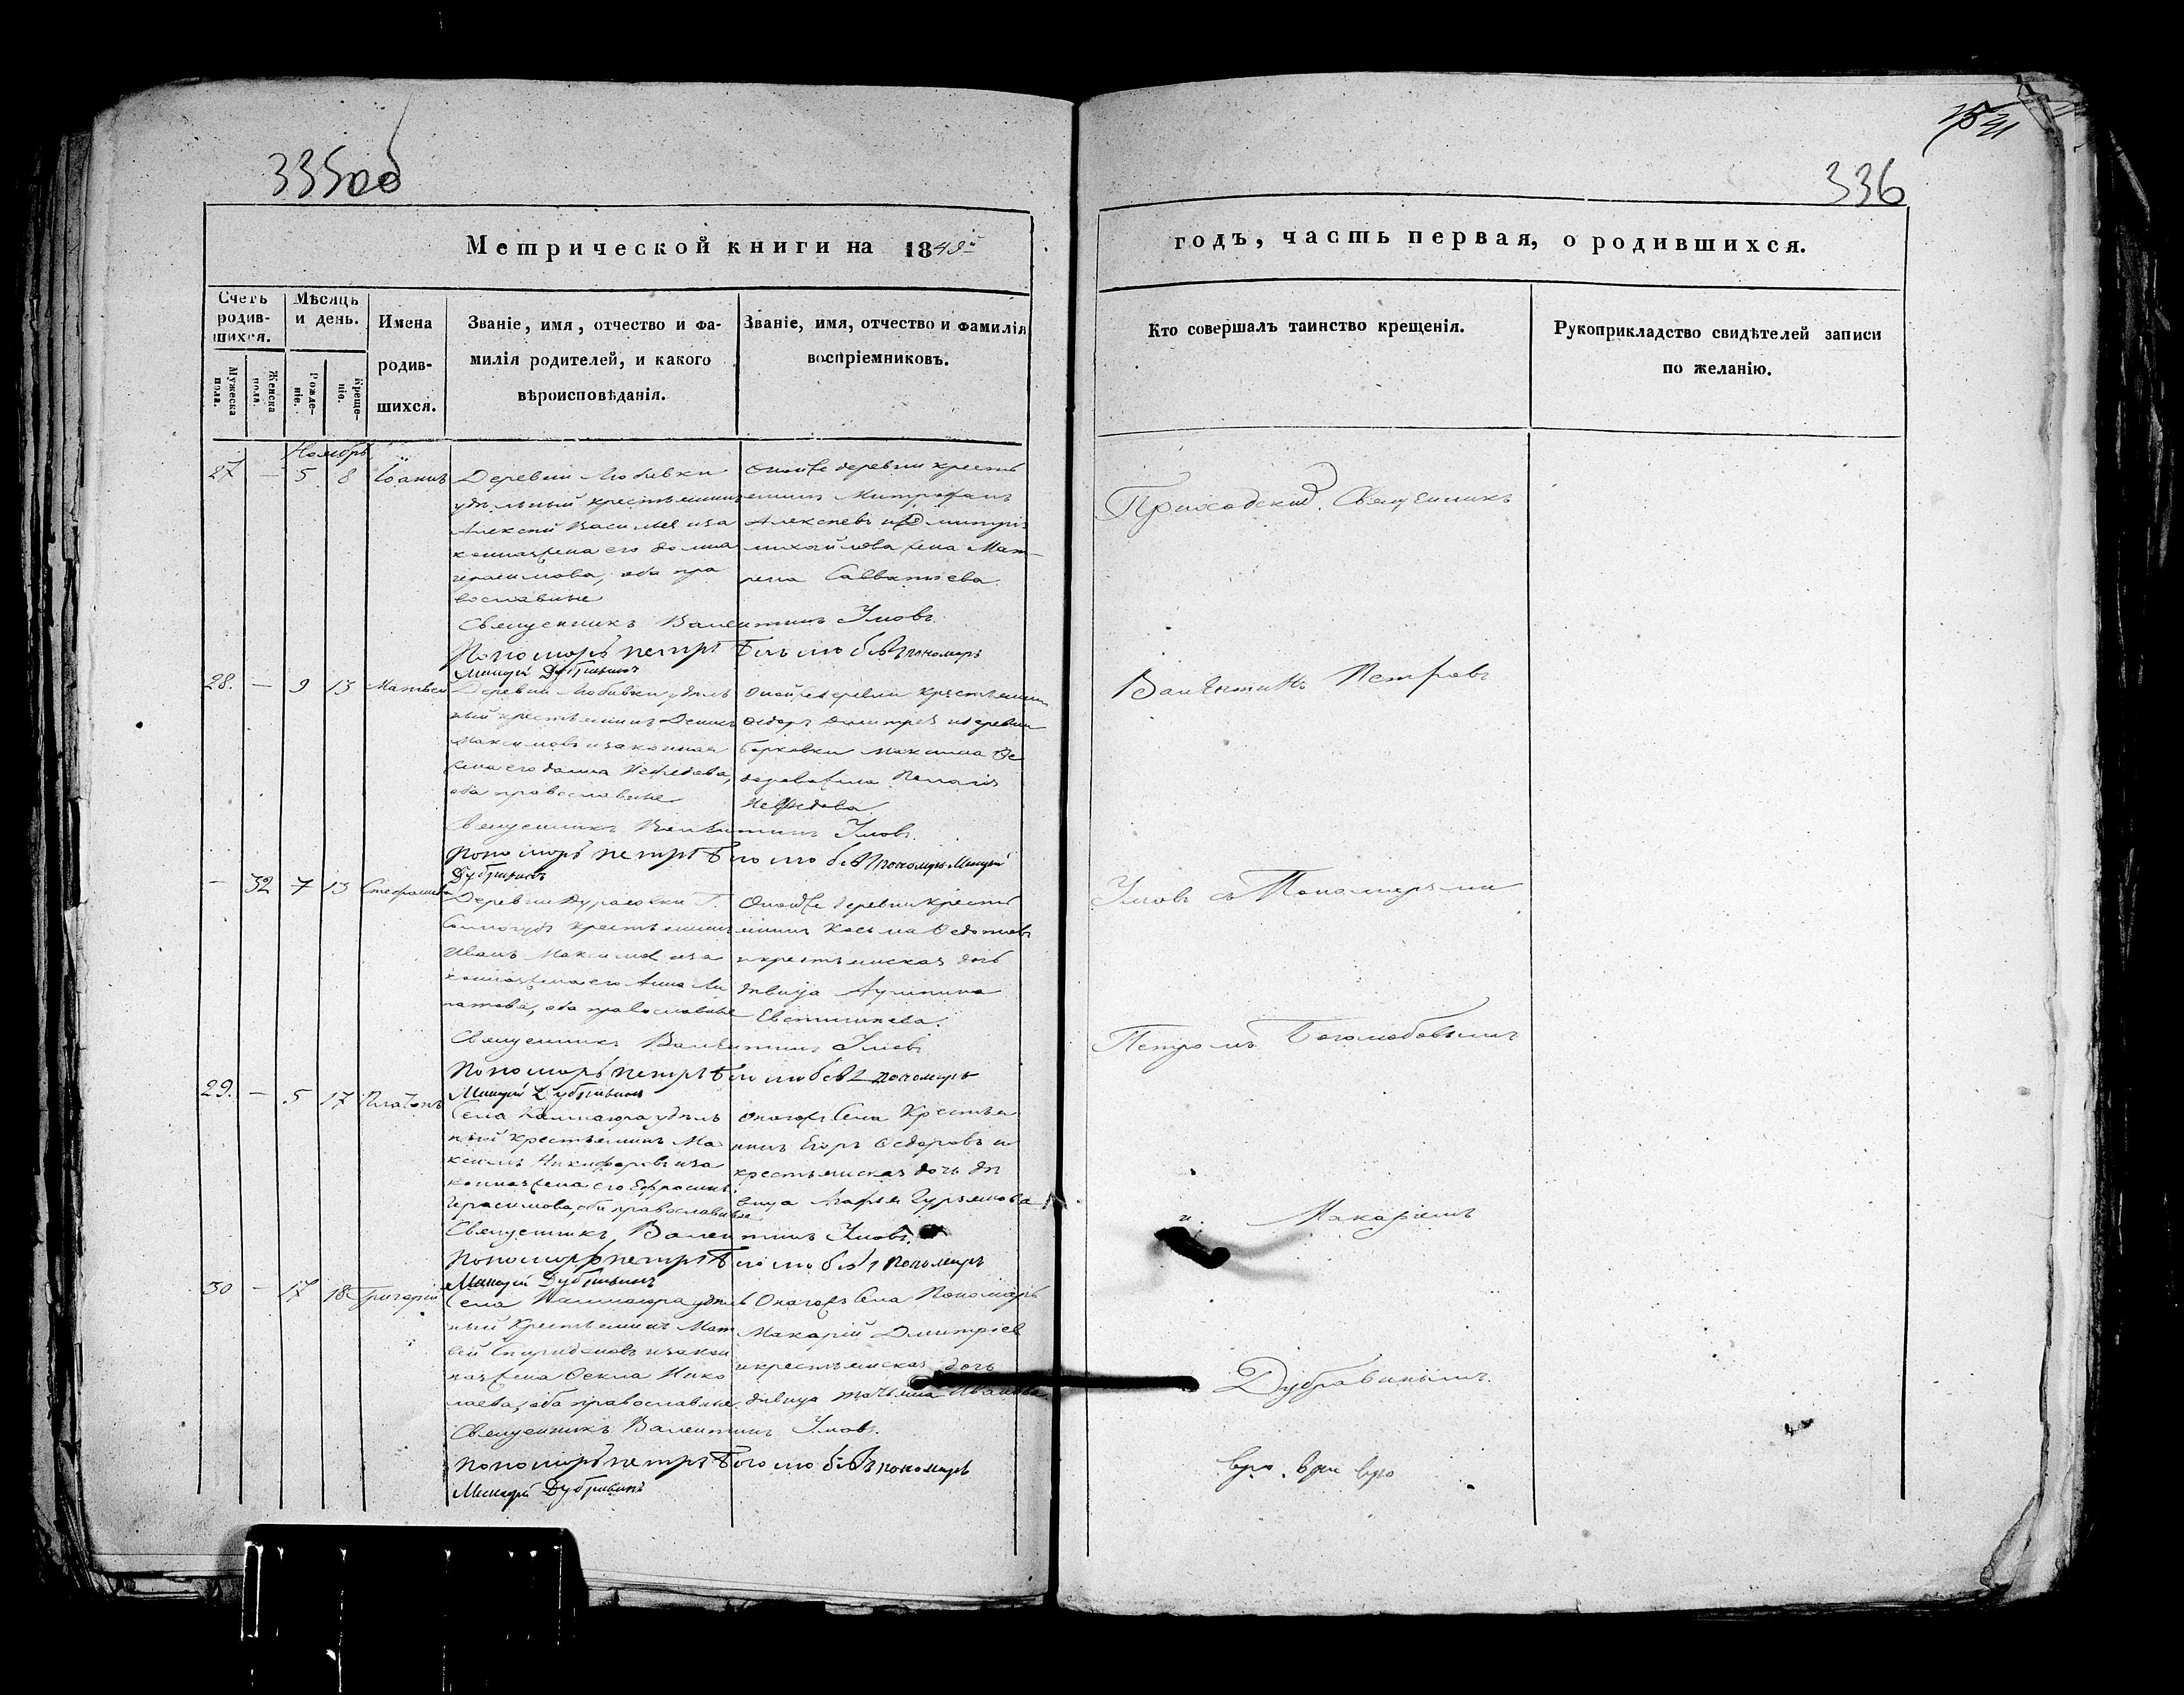 335об
336
Метрической книги на 18
годъ, часть первая, о родившихся.
Счетъ родив-шихся.
Мѣсяцъ и день.
Имена родив-шихся.
Званіе, имя, отчество и фа-
милія родителей, и какого
вѣроисповѣданія.
Званіе, имя, отчество и фамилія
воспріемниковъ.
Мужеска пола.
Женска пола.
Рожде-ніе.
Креще-ніе.
Кто совершалъ таинство крещенія.
Рукоприкладство свидѣтелей записи
по желанію.
Ноябрь
27 — 5 8 Іоаннъ
Деревни Любивки
удѣльный крестьянинъ
Алексѣй Васильевъ иза
конная жена его Домна
Герасимова, оба пра
вославные
Оной же деревни кресть
янинъ Митрофанъ
Алексѣевъ и Дмитрія
Михайлова жена Мат-
рена Савватіева
Священникъ Валентинъ Умовъ
Пономарь Петръ Боголюбовъ пономарь
Макарій Дубравинъ
28. — 9 13 Матвей
Деревни Любивки удѣль
ный крестьянинъ Денисъ
Максимовъ и законная
жена его Домна Нефедова,
оба православные
Оной же деревни крестьянинъ
Ѳедоръ Дмитріевъ и деревни
Максима Ѳе
дорова жена Пелагія
Нефедова
Священникъ Валентинъ Умовъ.
Пономарь Петръ Боголюбовъ Пономарь Макарій
Дубравинъ
— 32 7 13 Стефанида
Деревни Дурасовки Г.
крестьянинъ
Иванъ Максимовъ иза
конная жена его Анна Ли
патова, оба православные
Оной же деревни кресть
янинъ Косьма Ѳедотовъ
и крестьянская дочь
дѣвица Акулина
Евстигнеева.
Священникъ Валентинъ Умовъ
Пономарь Петръ Боголюбовъ пономарь
Макарій Дубравинъ
29. — 5 17 Платонъ
Села Калмаюра удѣль
ный крестьянинъ Ма
ксимъ Никифоровъ иза
конная жена его Ефросинья
Герасимова, оба православные
Онагожъ села Крестья
нинъ Егоръ Ѳедоровъ и
крестьянская дочь дѣ
вица Агафья Гурьянова
Священникъ Валентинъ Умовъ.
Пономарь Петръ Боголюбовъ Пономарь
Макарій Дубравинъ
30 — 17 18 Григорій
Села Калмаюра удѣль
ный Крестьянинъ Мат
вей Спиридоновъ изакон
ная жена Ѳекла Нико
лаева, оба православные.
Онагожъ села Пономарь
Макарій Дмитріевъ
и крестьянская дочь
дѣвица Татьяна Иванова
Священникъ Валентинъ Умовъ.
Пономарь Петръ Боголюбовъ пономарь
Макарій Дубравинъ
Приходский Священникъ
Валентинъ Петровъ
Умовъ съ Пономарями
Петромъ Боголюбовымъ
и Макаріемъ
Дубравинымъ.